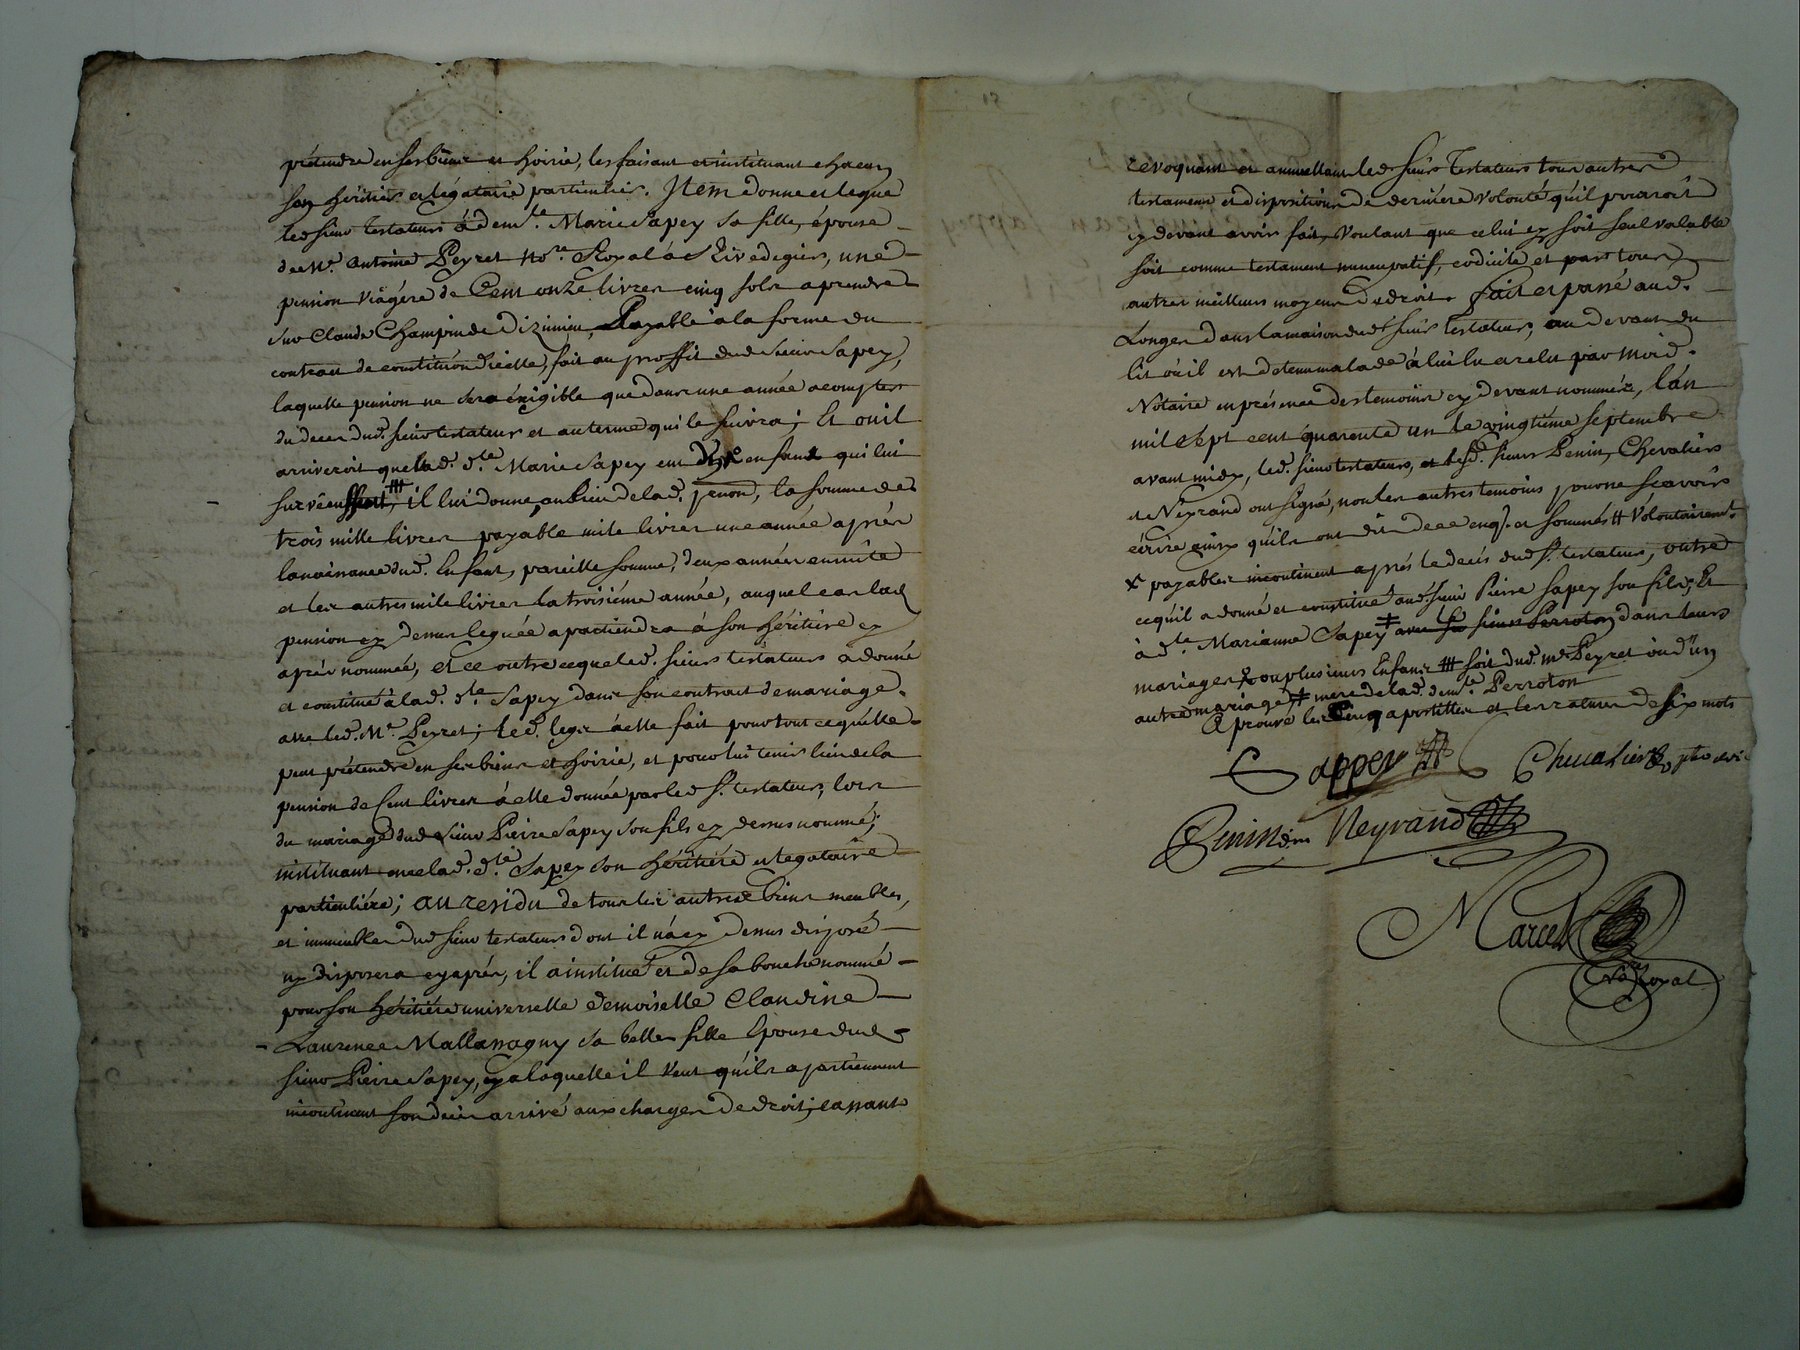 prétendre en ses biens et hoirie, les faisant et instituant chacun
son héritier et légataire particulier. Item donne et legue
led sieur testateur à dem.le Marie Sapey sa fille, épouse
de Me. Antoine Peyret no.re Royal à Rivedegier, une
pension viagére de Cent onze livres cinq sols a prendre
sur Claude Champin de Dizimieu, Payable à la forme du
contract de constitution d'icelle, fait au proffit dud Sieur Sapey,
laquelle pension ne sera éxigible que dans une année a compter
du deces dud. sieur testateur et au terme qui le suivra; Et ou il
arriveroit que lad. d.le Marie Sapey eut enfant qui lui
il lui donne, au lieu de lad. penon, la somme de
trois mille livres payable mile livres une année aprés
la naissance dud. Enfant, pareille somme, deux années ensuite
et les autres mile livres la troisiéme année, auquel cas lad
pension cy dessus leguée apartiendra à son héritiére cy
aprés nommée, et ce outre ce que led. sieur testateur a donné
et constitué à lad. d.le Sapey dans son contract de mariage
avec led. Me. Peyret; led. legs à elle fait pour tout ce qu'elle
peut prétendre en ses biens et hoirie, et pour lui tenir lieu de la
pension de Cent livres à elle donnée par led s.r testateur, lors
du mariage dud Sieur Pierre Sapey son fils cy dessus nommé;
instituant lad. d.le Sapey son héritiére et legataire
particuliére; au residu de tous les autres biens meubles,
et immeubles dud sieur testateur dont il n'a cy dessus disposé
ny disposera cy aprés, il a institué et de sa bouche nommé
pour son héritiére universelle demoiselle Claudine
Laurence Mallassagny sa belle fille Epouse dud
sieur Pierre Sapey, a laquelle il veut qu'ils apartiennent
incontinent son decés arrivé aux charges de droit; cassant
revoquant et annullant led sieur Testateur tous autres
testament et dispositions de derniére volonté qu'il pourroit
cy devant avoir fait, voulant que celui cy soit seul valable
soit comme testament nuncupatif, codicile et par tous
autres meilleurs moyens de droit. fait et passé aud.
Longes dans la maison dud sieur testateur, au devant du
lit où il est detenu malade à lui lu et relu par moid.
Notaire en présence des temoins cy devant nommés, l'an
mil sept cent quarente un le vingtiéme septembre
avant midy, led. sieur testateur, et lesd. sieurs Penin, Chevalier
et Neyrand ont signé, non les autres temoins pour ne scavoir
écrire ainsy qu'ils ont dit de ce enq.s et sommés # Volontairem.t
x payables incontinent aprés le decés dud s.r testateur, outre
ce qu'il a donné et constitué aud. sieur Pierre Sapey son fils; Et
à d.le Marianne Sapey ‡ sieur Perroton dans leurs
mariages x ou plusieurs Enfans ⧻ soit dud. me Peyret ou d'un
autre mariage ‡ mere de lad. dem.le Perroton
Aprouvé les Cinq apostilles et les ratures de six mots
Sappey Chevalier
Penin Neyrand
Marcel
No.re Royal